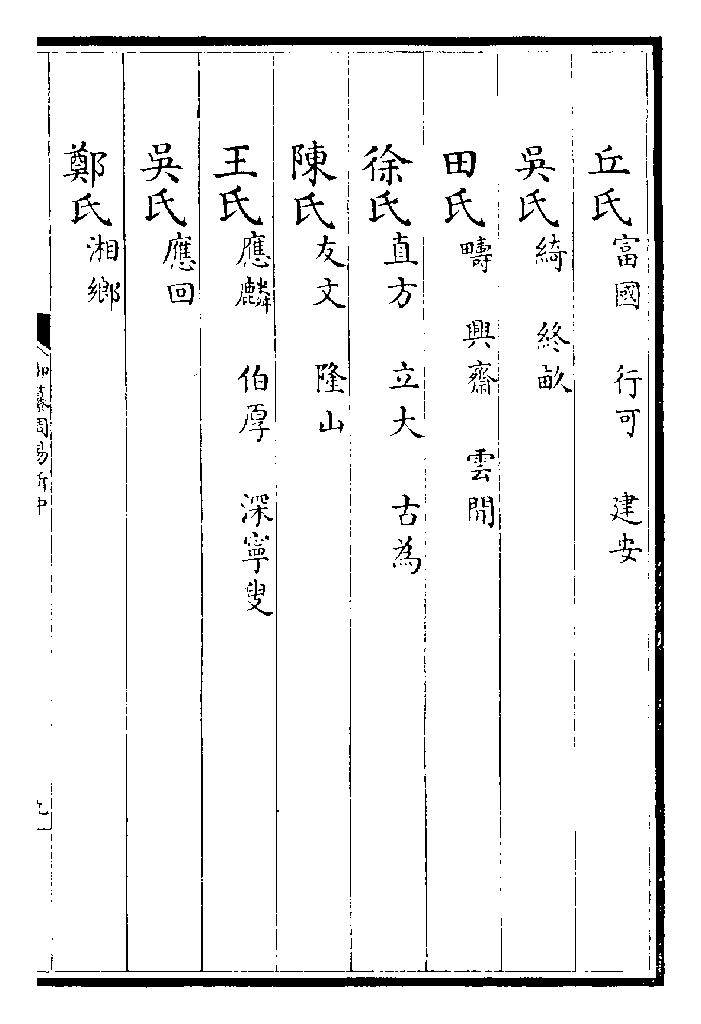 丘氏富國 行可 建安
吳氏綺 終畝
田氏疇 興齋 雲閒
徐氏直方 立大 古為
陳氏友文 隆山
王氏應麟 伯厚 深寧叟
吳氏應回
鄭氏湘鄉
御纂周易折中
九